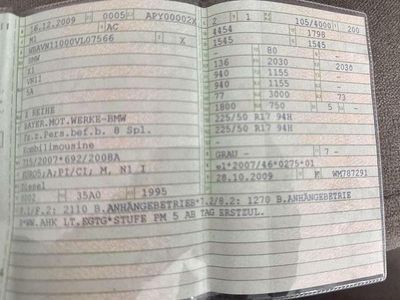 16.12.2009 0005 APY00002X
M1 AC
WBAVN11000VL07566 X
BMW
X1
VN11
5A
X REIHE
BAYER.MOT.WERKE-BMW
Fz.z.Pers.bef.b. 8 Spl.
Kombilimousine
715/2007*692/2008A
EURO5;A;PI/CI; M, N1 I
Diesel
0002 35A0 1995
7.1/8.2: 2110 B.ANHÄNGEBETRIEB*7.2/8.2: 1270 B.ANHÄNGEBETRIE
B*WW.AHK LT.EGTG*STUFE PM 5 AB TAG ERSTZUL.
2 1 105/4000 200
4454 1798
1545 1545
- 80 -
136 2030 2030
940 1155 -
940 1155 -
77 3000 73
1800 750 5 -
225/50 R17 94H
225/50 R17 94H
-
GRAU - 7 -
e1*2007/46*0275*01
28.10.2009 K WM787291